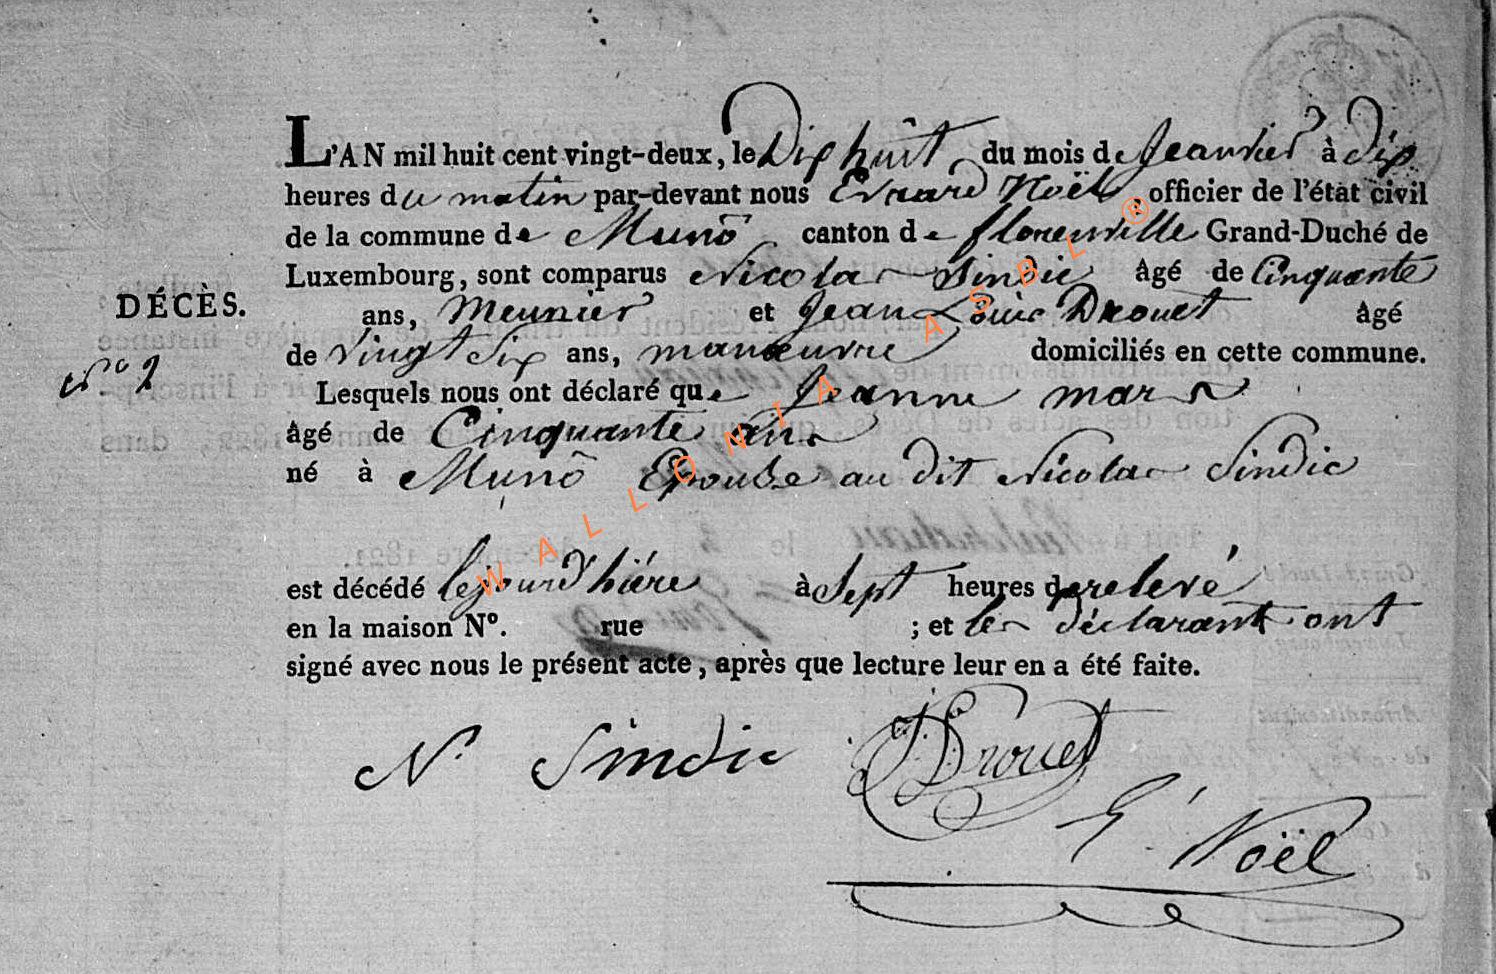 L'AN mil huit cent vingt-deux, le Dix huit du mois de Jeanvier à dix
heures du matin par-devant nous Evrard Noël, officier de l'état civil
de la commune de Munô canton de florenville Grand-Duché de
Luxembourg, sont comparus Nicolas Sindic âgé de Cinquante
DÉCÈS.
ans, Meunier et Jean Louis Drouet âgé
de Vingt Six ans, manœuvre domiciliés en cette commune.
N° 2
Lesquels nous ont déclaré que Jeanne mars
âgé de Cinquante ans
né à Munô Epouse au dit Nicolas Sindic
est décédé lejourd'hiére à Sept heures de relevé
en la maison N°. rue ; et les déclarants ont
signé avec nous le présent acte, après que lecture leur en a été faite.
N. Sindic
J L Drouet
E. Noël
WALLONIA ASBL ®